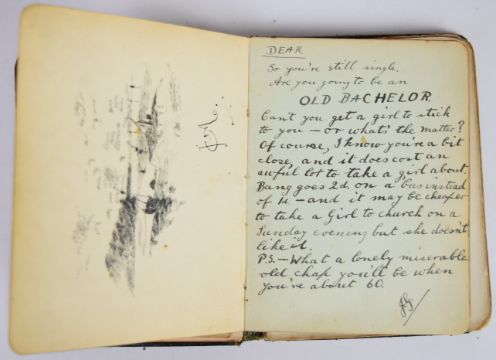 DEAR.
So you're still single.
Are you going to be an
OLD BACHELOR.
Can't you get a girl to stick
to you – or what's the matter?
Of course, I know you're a bit
close, and it does cost an
awful lot to take a girl about.
Bang goes 2d. on a bus instead
of 1d. – and it may be cheaper
to take a Girl to church on a
Sunday evening but she doesn't
like it.
P.S. – What a lonely miserable
old chap you'll be when
you're about 60.